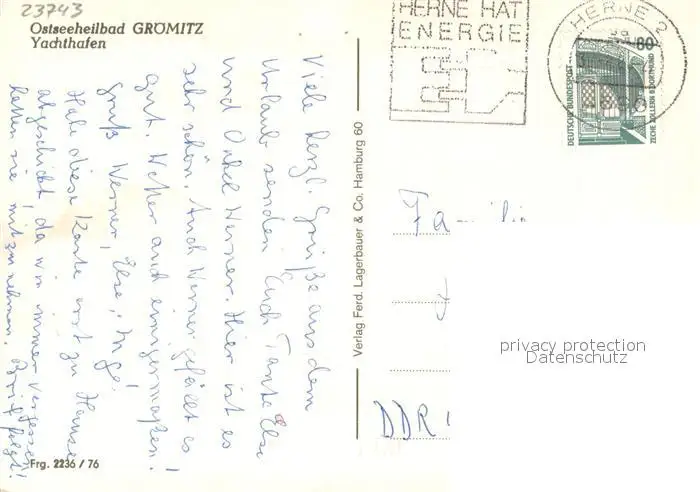 23743
Ostseeheilbad GRÖMITZ
Yachthafen
Viele herzl. Grüße aus dem
Urlaub senden Euch Tante Else
und Onkel Werner. Hier ist es
sehr schön. Auch Werner gefällt es
gut. Wetter auch einigermaßen!
Gruß Werner, Else, Inge!
Habe diese Karte erst zu Hause
abgeschickt, da wir immer vergessen
haben sie mitzunehmen. Brief folgt!
Frg. 2236 / 76
Verlag Ferd. Lagerbauer & Co. Hamburg 60
HERNE HAT
ENERGIE
HERNE 2
80
DEUTSCHE BUNDESPOST
ZECHE ZOLLERN II DORTMUND
Fa
DDR
privacy protection
Datenschutz